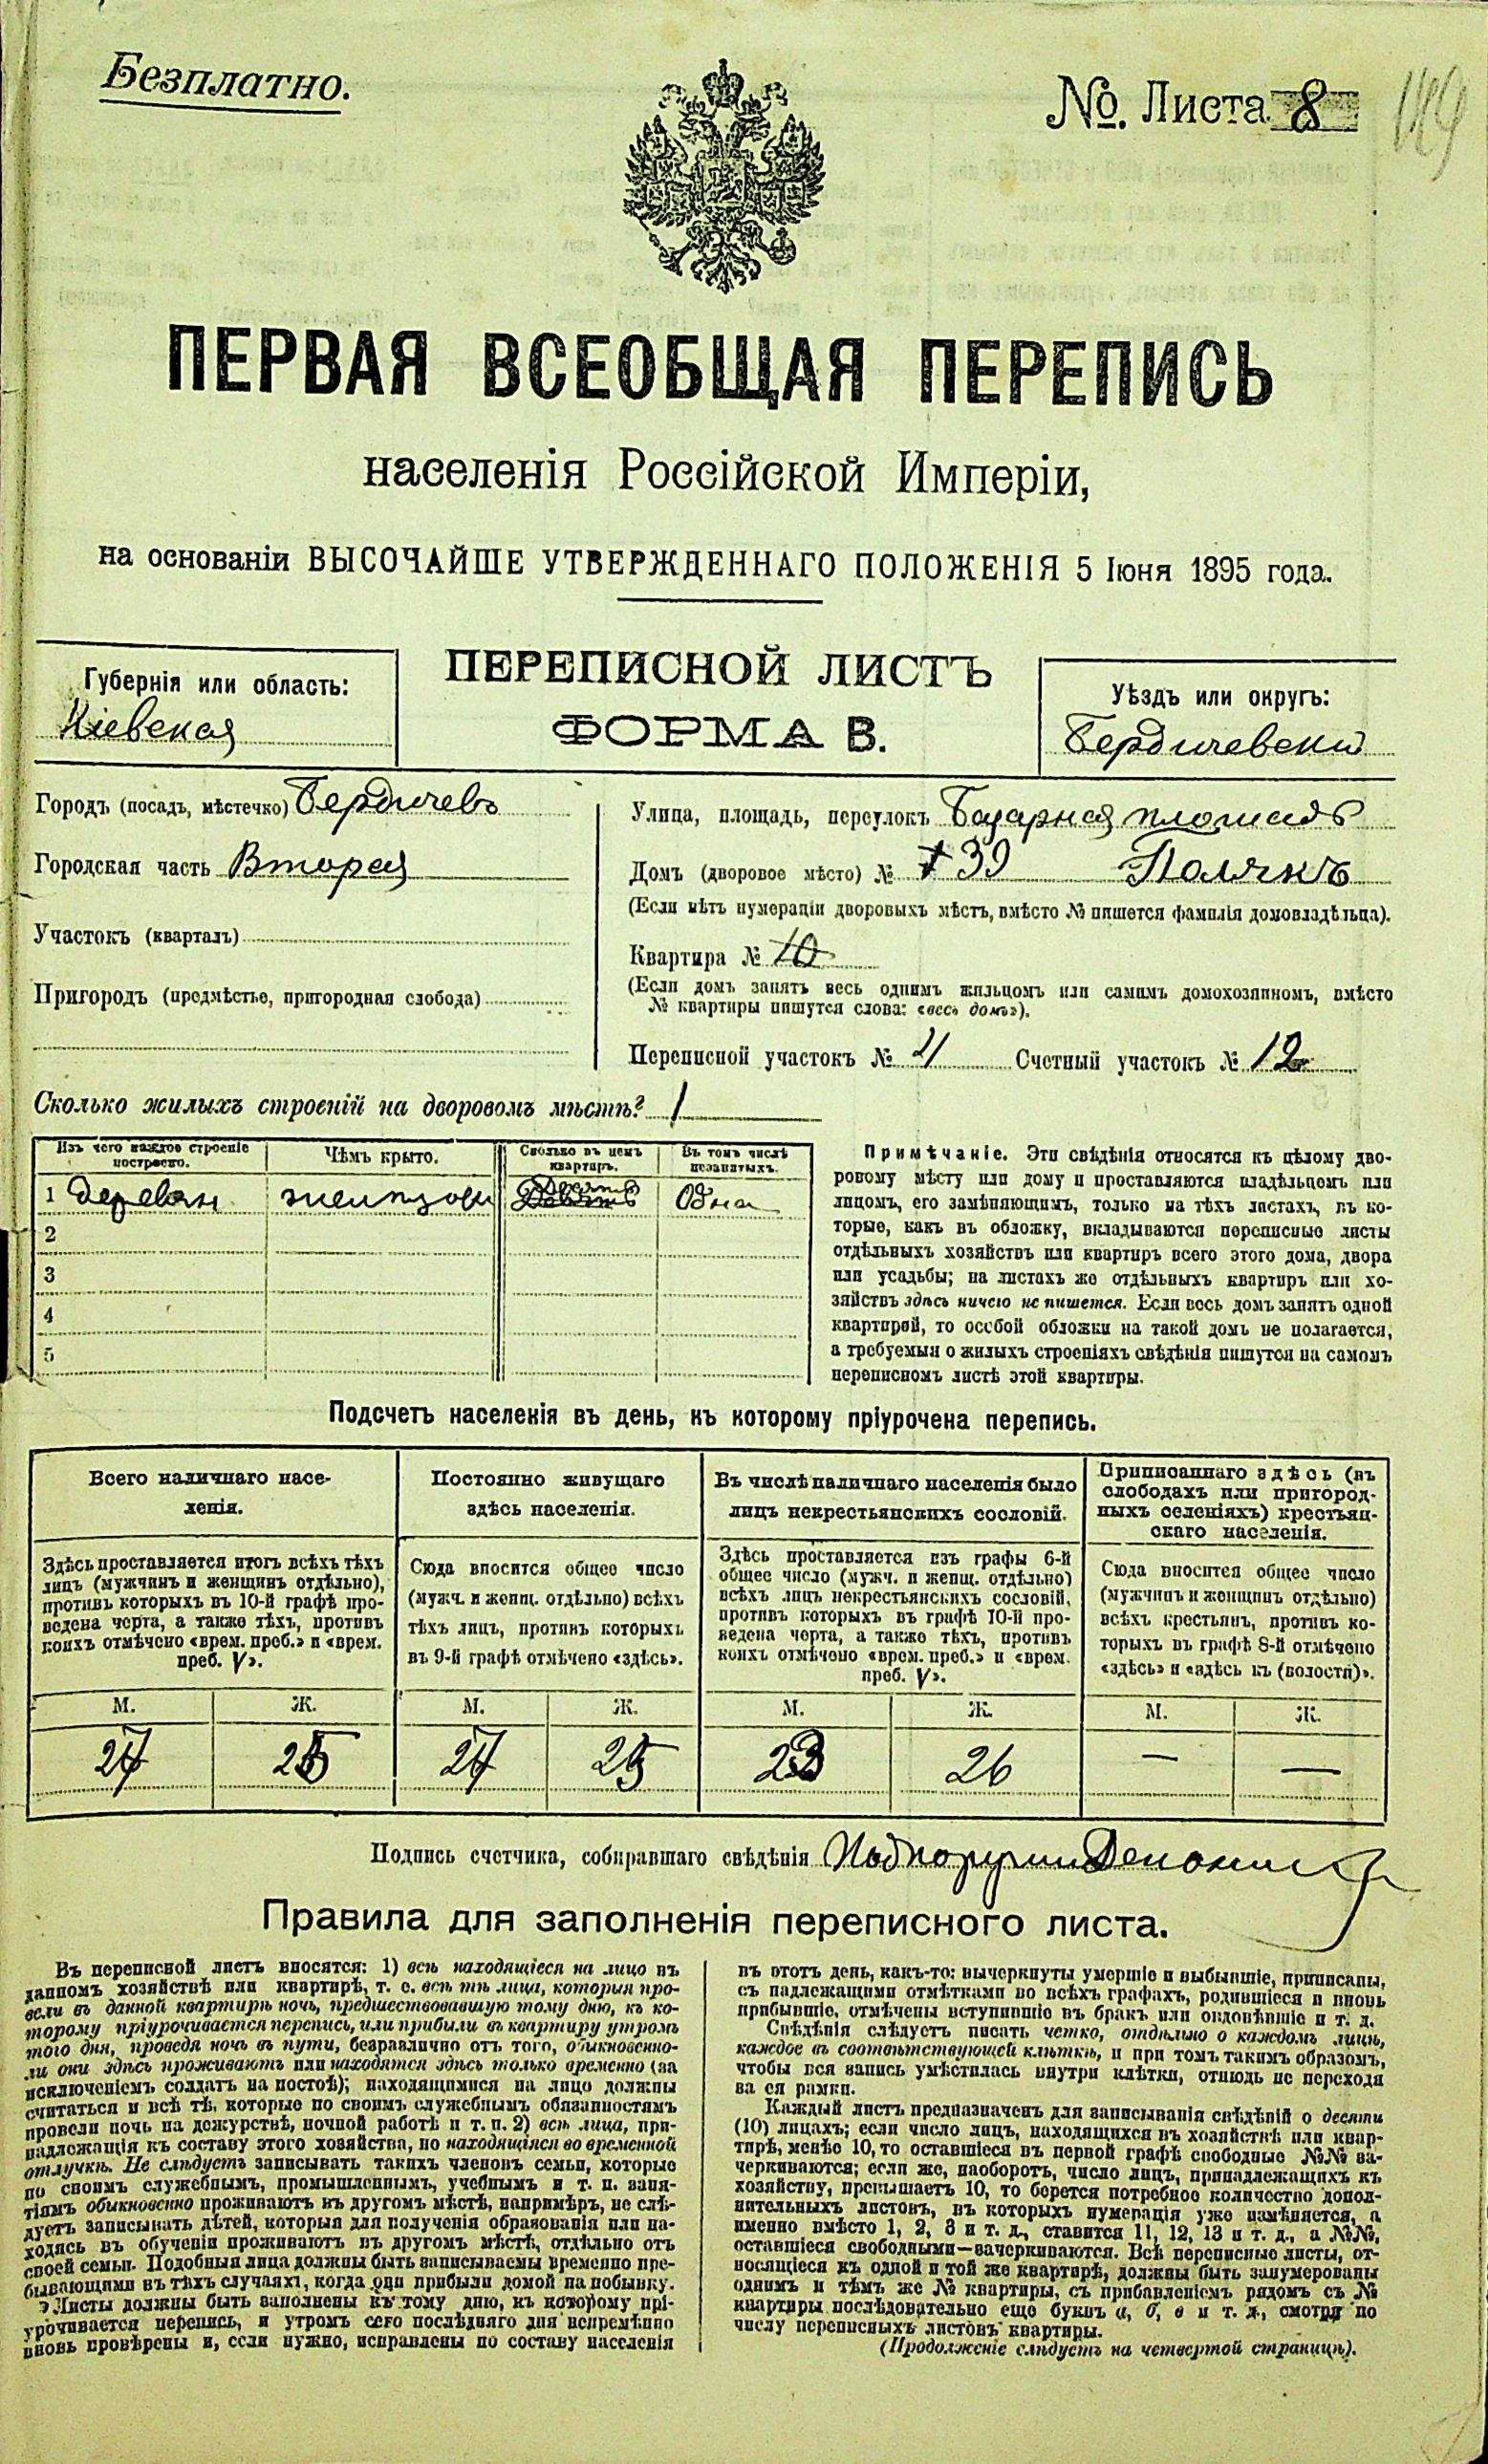 Безплатно.
№. Листа 8
149
ПЕРВАЯ ВСЕОБЩАЯ ПЕРЕПИСЬ
населенія Россійской Имперіи,
на основаніи ВЫСОЧАЙШЕ УТВЕРЖДЕННАГО ПОЛОЖЕНІЯ 5 Іюня 1895 года.
ПЕРЕПИСНОЙ ЛИСТЪ
ФОРМА В.
Губернія или область:
Кіевская
Уѣздъ или округъ:
Бердичевскій
Городъ (посадъ, мѣстечко) Бердичевъ
Городская часть Вторая
Участокъ (кварталъ)
Пригородъ (предмѣстье, пригородная слобода)
Улица, площадь, переулокъ Базарная площадь
Домъ (дворовое мѣсто) № 39 Полякъ
(Если нѣтъ нумераціи дворовыхъ мѣстъ, вмѣсто № пишется фамилія домовладѣльца).
Квартира № 10
(Если домъ занятъ весь однимъ жильцомъ или самимъ домохозяиномъ, вмѣсто
№ квартиры пишутся слова: «весь домъ»).
Переписной участокъ № 21 Счетный участокъ № 12
Сколько жилыхъ строеній на дворовомъ мѣстѣ? 1
Изъ чего каждое строеніе
построено.
Чѣмъ крыто.
Сколько въ немъ
квартиръ.
Въ томъ числѣ
незанятыхъ.
1 деревян Одна
2
3
4
5
Примѣчаніе. Эти свѣдѣнія относятся къ цѣлому дво-
ровому мѣсту или дому и проставляются владѣльцомъ или
лицомъ, его замѣняющимъ, только на тѣхъ листахъ, въ ко-
торые, какъ въ обложку, вкладываются переписные листы
отдѣльныхъ хозяйствъ или квартиръ всего этого дома, двора
или усадьбы; на листахъ же отдѣльныхъ квартиръ или хо-
зяйствъ здѣсь ничего не пишется. Если весь домъ занятъ одной
квартирой, то особой обложки на такой домъ не полагается,
а требуемыя о жилыхъ строеніяхъ свѣдѣнія пишутся на самомъ
переписномъ листѣ этой квартиры.
Подсчетъ населенія въ день, къ которому пріурочена перепись.
Всего наличнаго насе-
ленія.
Постоянно живущаго
здѣсь населенія.
Въ числѣ наличнаго населенія было
лицъ некрестьянскихъ сословій.
Приписаннаго здѣсь (въ
слободахъ или пригород-
ныхъ селеніяхъ) крестьян-
скаго населенія.
Здѣсь проставляется итогъ всѣхъ тѣхъ
лицъ (мужчинъ и женщинъ отдѣльно),
противъ которыхъ въ 10-й графѣ про-
ведена черта, а также тѣхъ, противъ
коихъ отмѣчено «врем. преб.» и «врем.
преб. V».
Сюда вносится общее число
(мужч. и женщ. отдѣльно) всѣхъ
тѣхъ лицъ, противъ которыхъ
въ 9-й графѣ отмѣчено «здѣсь».
Здѣсь проставляется изъ графы 6-й
общее число (мужч. и женщ. отдѣльно)
всѣхъ лицъ некрестьянскихъ сословій,
противъ которыхъ въ графѣ 10-й про-
ведена черта, а также тѣхъ, противъ
коихъ отмѣчено «врем. преб.» и «врем.
преб. V».
Сюда вносится общее число
(мужчинъ и женщинъ отдѣльно)
всѣхъ крестьянъ, противъ ко-
торыхъ въ графѣ 8-й отмѣчено
«здѣсь» и «здѣсь къ (волости)».
М. Ж. М. Ж. М. Ж. М. Ж.
24 25 24 25 23 26 — —
Подпись счетчика, собиравшаго свѣдѣнія
Правила для заполненія переписного листа.
Въ переписной листъ вносятся: 1) всѣ находящіеся на лицо въ
данномъ хозяйствѣ или квартирѣ, т. е. всѣ тѣ лица, которыя про-
вели въ данной квартирѣ ночь, предшествовавшую тому дню, къ ко-
торому пріурочивается перепись, или прибыли въ квартиру утромъ
того дня, проведя ночь въ пути, безразлично отъ того, обыкновенно-
ли они здѣсь проживаютъ или находятся здѣсь только временно (за
исключеніемъ солдатъ на постоѣ); находящимися на лицо должны
считаться и всѣ тѣ, которые по своимъ служебнымъ обязанностямъ
провели ночь на дежурствѣ, ночной работѣ и т. п. 2) всѣ лица, при-
надлежащія къ составу этого хозяйства, но находящіяся во временной
отлучкѣ. Не слѣдуетъ записывать такихъ членовъ семьи, которые
по своимъ служебнымъ, промышленнымъ, учебнымъ и т. п. заня-
тіямъ обыкновенно проживаютъ въ другомъ мѣстѣ, напримѣръ, не слѣ-
дуетъ записывать дѣтей, которыя для полученія образованія или на-
ходясь въ обученіи проживаютъ въ другомъ мѣстѣ, отдѣльно отъ
своей семьи. Подобныя лица должны быть записываемы временно пре-
бывающими въ тѣхъ случаяхъ, когда они прибыли домой на побывку.
Листы должны быть заполнены къ тому дню, къ которому прі-
урочивается перепись, и утромъ сего послѣдняго дня непремѣнно
вновь провѣрены и, если нужно, исправлены по составу населенія
въ этотъ день, какъ-то: вычеркнуты умершіе и выбывшіе, приписаны,
съ надлежащими отмѣтками во всѣхъ графахъ, родившіеся и вновь
прибывшіе, отмѣчены вступившіе въ бракъ или овдовѣвшіе и т. д.
Свѣдѣнія слѣдуетъ писать четко, отдѣльно о каждомъ лицѣ,
каждое въ соотвѣтствующей клѣткѣ, и при томъ такимъ образомъ,
чтобы вся запись умѣстилась внутри клѣтки, отнюдь не переходя
за ея рамки.
Каждый листъ предназначенъ для записыванія свѣдѣній о десяти
(10) лицахъ; если число лицъ, находящихся въ хозяйствѣ или квар-
тирѣ, менѣе 10, то оставшіеся въ первой графѣ свободные №№ за-
черкиваются; если же, наоборотъ, число лицъ, принадлежащихъ къ
хозяйству, превышаетъ 10, то берется потребное количество допол-
нительныхъ листовъ, въ которыхъ нумерація уже измѣняется, а
именно вмѣсто 1, 2, 3 и т. д., ставится 11, 12, 13 и т. д., а №№,
оставшіеся свободными—зачеркиваются. Всѣ переписные листы, от-
носящіеся къ одной и той же квартирѣ, должны быть занумерованы
однимъ и тѣмъ же № квартиры, съ прибавленіемъ рядомъ съ №
квартиры послѣдовательно еще буквъ а, б, в и т. д., смотря по
числу переписныхъ листовъ квартиры.
(Продолженіе слѣдуетъ на четвертой страницѣ).